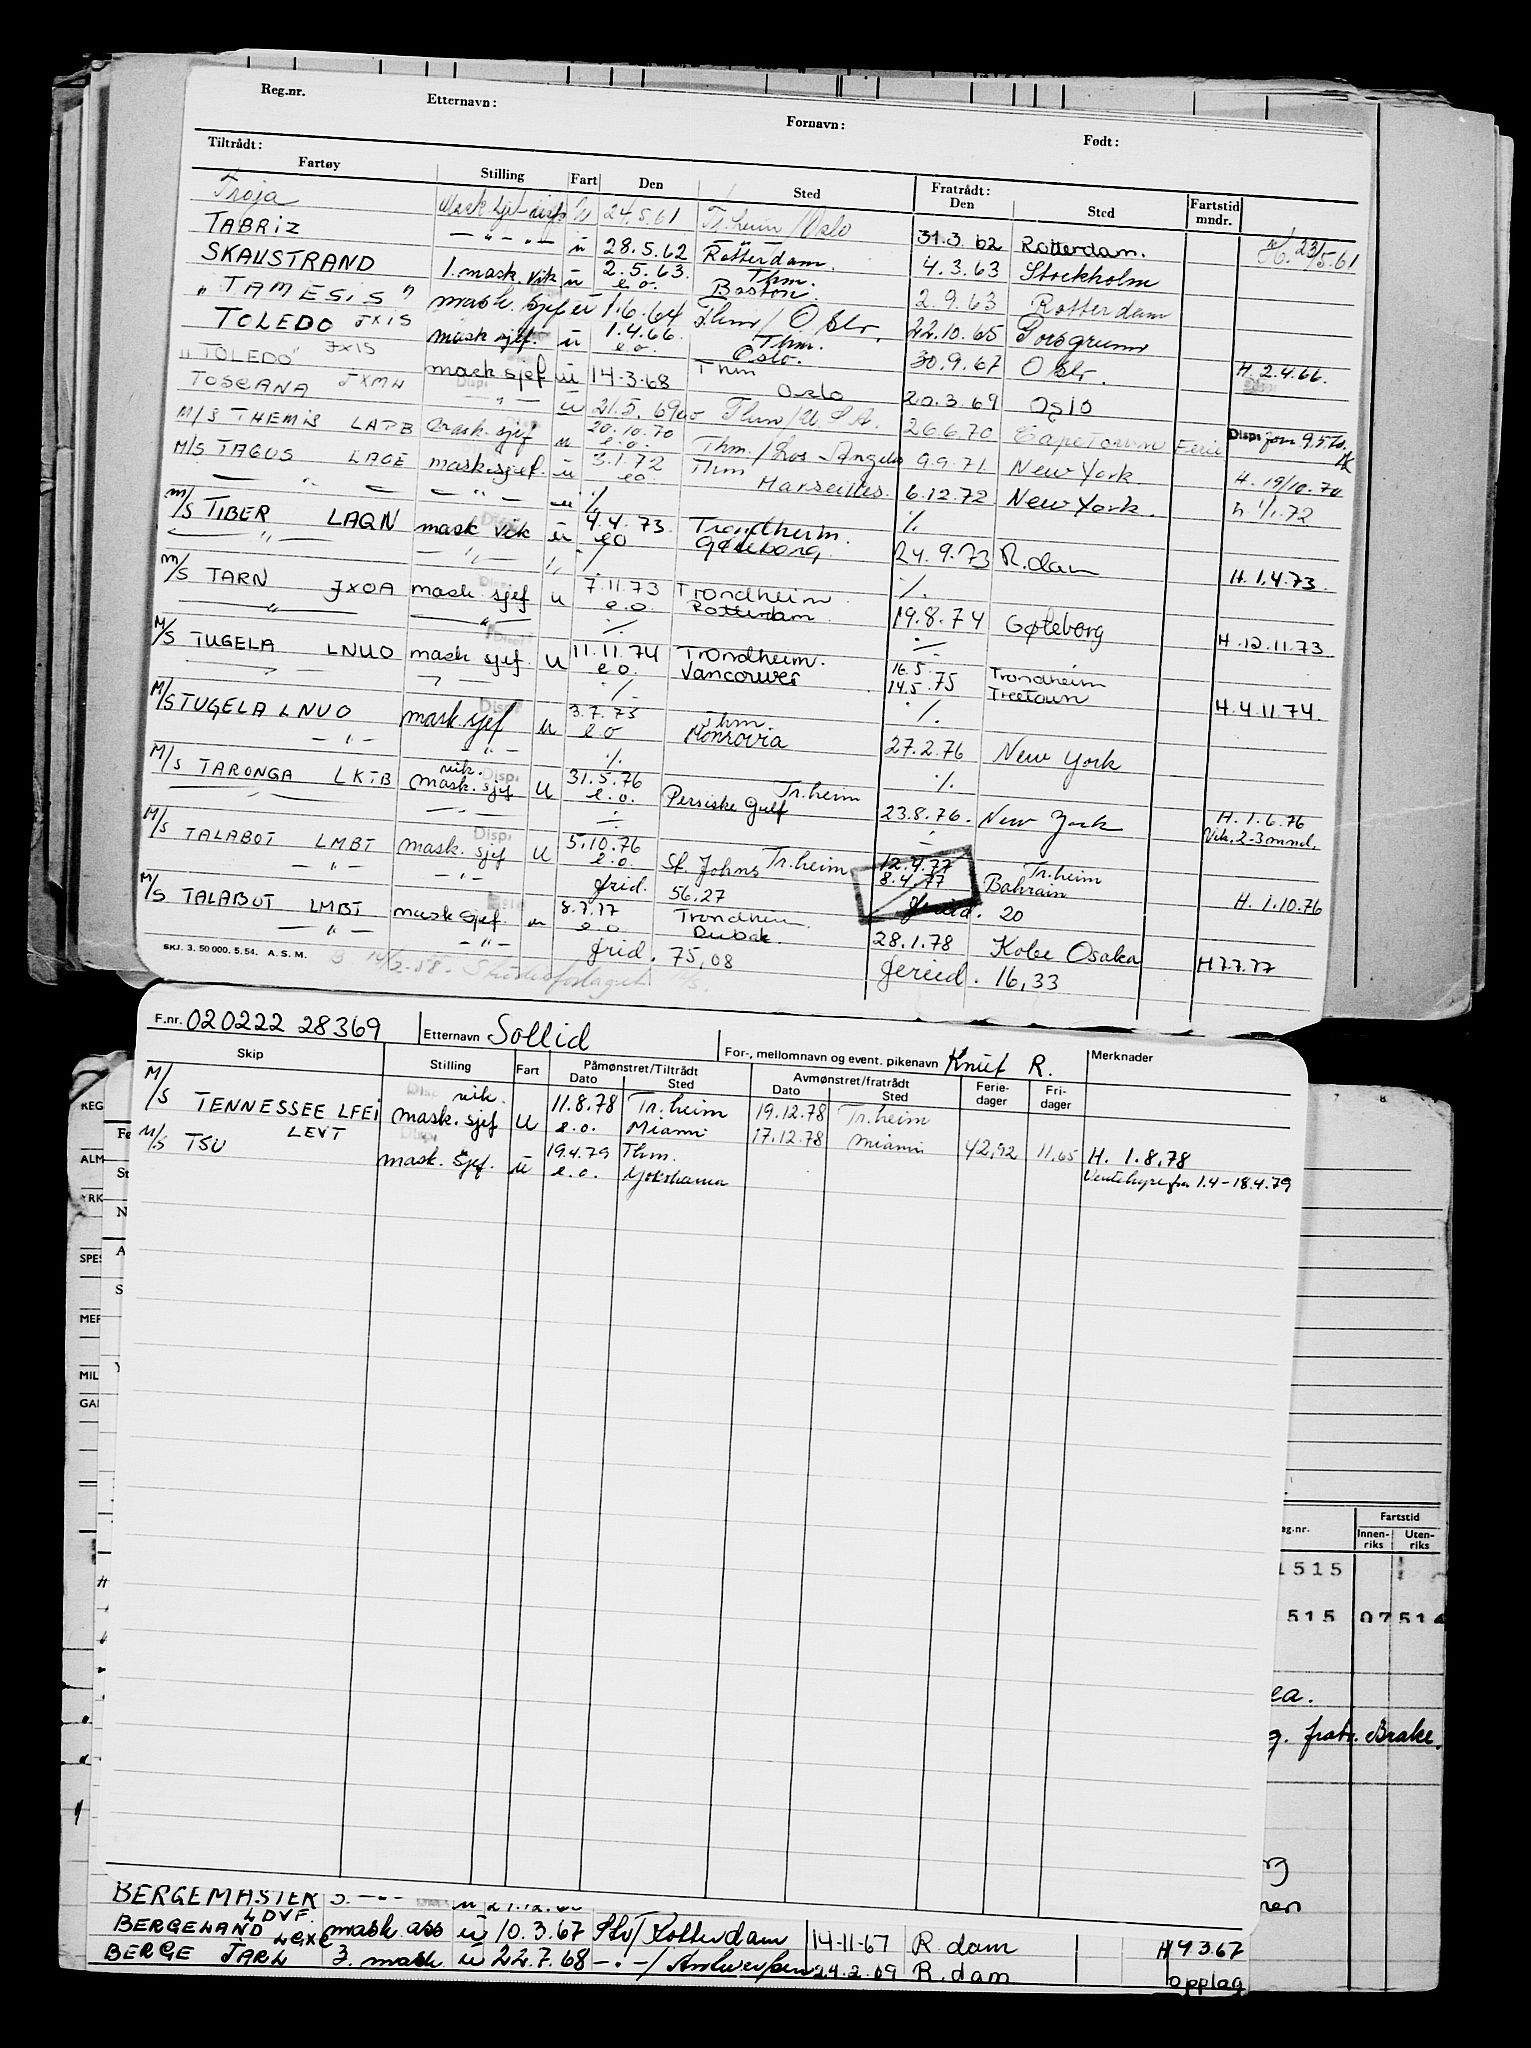 Reg.nr. Etternavn: Fornavn: Født:
Tiltrådt: Fratrådt:
Fartøy Stilling Fart Den Sted Den Sted Fartstid mndr.
Troja 24.5.61 Tr.heim/Oslo 31.3.62 Rotterdam. 23/5.61
TABRIZ — " — " — u 28.5.62 Rotterdam. 4.3.63 Stockholm
SKAUSTRAND 1. mask. vik u 2.5.63. e.o. Thm. Boston. 2.9.63 Rotterdam
" TAMESIS " mask. sjef u 1.6.64 Thm/Oslo. 22.10.65 Porsgrunn
TOLEDO JXIS mask sjef. u 1.4.66. e.o. Thm. Oslo. 30.9.67 Oslo. H. 2.4.66.
"TOLEDO" JXIS mask sjef u 14.3.68 Thm Oslo 20.3.69 Oslo
TOSCANA JXMW — " — u 21.5.69 Thm/U.S.A. 26.6.70 Capetown Ferie Disp. fom 9.5.70.
M/S THEMIS LAPB mask. sjef u 20.10.70 e.o. Thm./Los Angeles 9.9.71. New York. H. 19/10.70
M/S TAGUS LAOE mask.sjef. u 3.1.72 e.o. Thm Marseilles. 6.12.72 New York. h. 1/1.72
— " — — " — ./.
M/S TIBER LAQN mask vik u 4.4.73. eo Trondheim. Gøteborg. 24.9.73 R.dam H. 1.4.73.
— " — — " — ./.
M/S TARN JXOA mask. sjef u 7.11.73 e.o. Trondheim. Rotterdam. 19.8.74 Gøteborg H.12.11.73
— " — — " — ./.
M/S TUGELA LNUO mask sjef. u 11.11.74 e.o. Trondheim. Vancouver 16.5. 14.5.75 Trondheim Treetown H.4.11.74.
M/S TUGELA LNUO mask.sjef u 3.7.75 e.o Thm. Monrovia 27.2.76 New York
— " — — " — ./.
M/S TARONGA LKTB vik. mask. sjef U 31.5.76 e.o. Tr.heim Persiske Gulf 23.8.76. New York H. 1.6.76 Vik. 2-3 mnd.
M/S TALABOT LMBT mask. sjef U 5.10.76 e.o. Tr.heim St. Johns 12.4.77 8.4.77 Tr.heim Bahrain H. 1.10.76
— " — — " — frid. 56.27 20
M/S TALABOT LMBT mask sjef. u 8.7.77 e.o Trondheim Dubai. 28.1.78 Kobe Osaka H7.7.77
— " — — " — frid. 75,08 feried. 16,33
SKJ. 3. 50 000. 5. 54. A. S. M.
F.nr. 020222 28369 Etternavn Sollid For-, mellomnavn og event. pikenavn Knut R. Merknader
Skip Stilling Fart Påmønstret/Tiltrådt Dato Sted Avmønstret/fratrådt Dato Sted Ferie-dager Fri-dager
M/S TENNESSEE LFEI vik. mask. sjef U 11.8.78 e.o. Tr.heim Miami 19.12.78 17.12.78 Tr.heim Miami 42,92 11,65 H. 1.8.78
M/S TSU LEVT mask. sjef. u 19.4.79 e.o. Thm. Yokohama Ventehyre fra 1.4-18.4.79
REG
ALM
YRK
SPES
MER
MIL
GAL
eg.nr. Fartstid
Innen-riks Uten-riks
1515
515 07514
ea.
fratr. Brake.
BERGEMASTER
LDVF.
BERGELAND mask ass u 10.3.67 Rotterdam 14-11-67 R.dam H 9367
BERGE JARL 3. mask u 22.7.68 — . — / Antwerpen 24.2.69 R.dam opplag